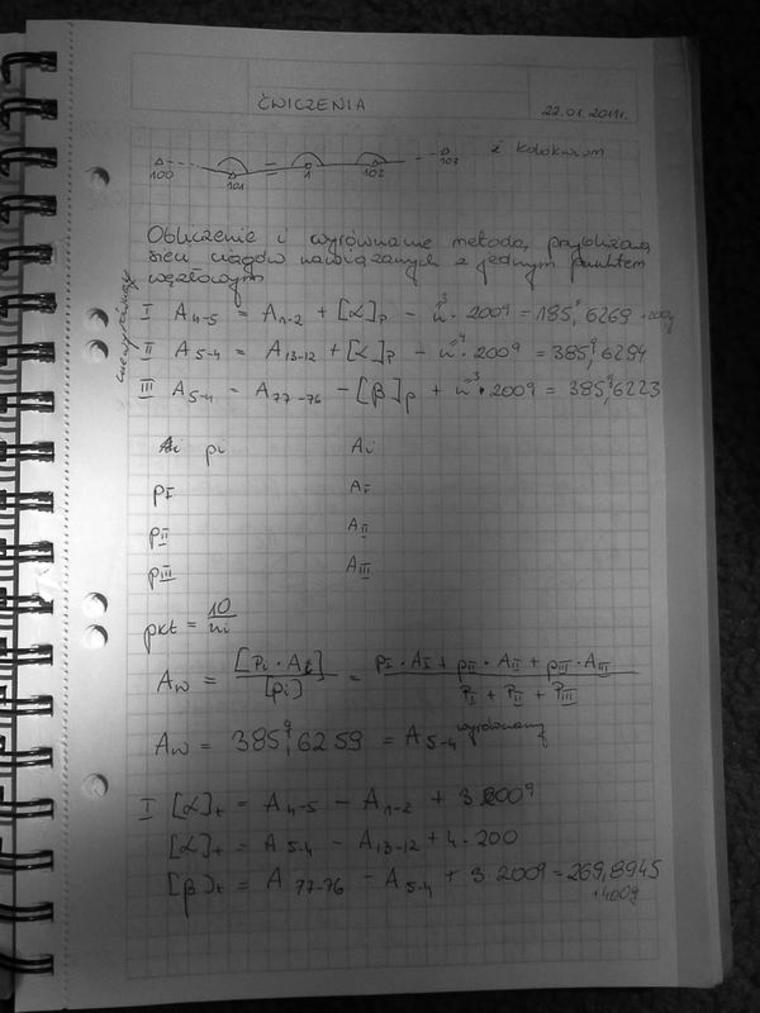 ĆWICZENIA
22.01.2011r.
100 101 1 102 103 z kolokwium
Obliczenie i wyrównanie metodą przybliżoną
sieci ciągów nawiązanych z jednym punktem
węzłowym
I A4-5 = A1-2 + [α]p - n³ · 200g = 185,g6269 +200g
II A5-4 = A13-12 + [α]p - n⁴ · 200g = 385,g6294
III A5-4 = A77-76 - [β]p + n³ · 200g = 385,g6223
pi Ai
pI AI
pII AII
pIII AIII
pkt = 10/ni
Aw = [Pi · At]/[pi] = pI · AI + pII · AII + pIII · AIII / PI + PII + PIII
Aw = 385,g6259 = A5-4 wyrównany
I [α]t = A4-5 - A1-2 + 3 200g
[α]t = A5-4 - A13-12 + 4 · 200
[β]t = A77-76 - A5-4 + 3 200g = 269,8945
+400g